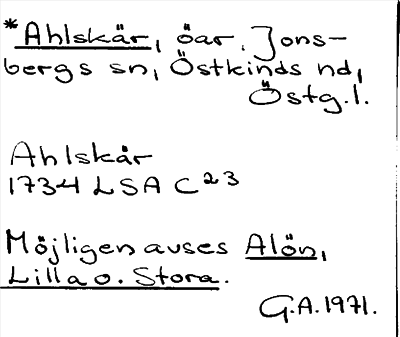 *Ahlskär, öar, Jons-
bergs sn, Östkinds hd,
Östg.l.
Ahlskär
1734 LSA C23
Möjligen avses Alön,
Lilla o. Stora.
G.A. 1971.